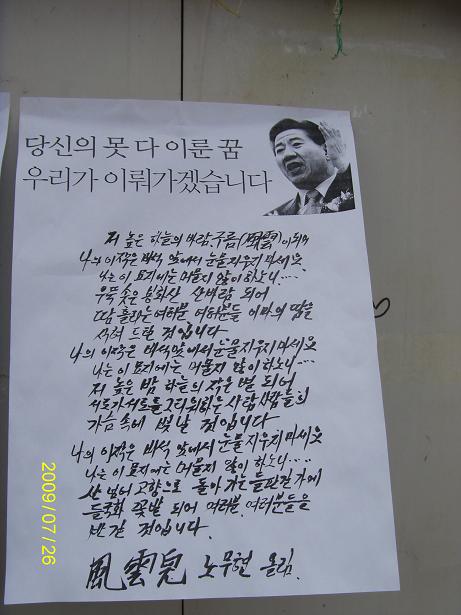 당신의 못 다 이룬 꿈
우리가 이뤄가겠습니다
저 높은 하늘의 바람구름(風雲)이 되어
나의 이 작은 비석 앞에서 눈물 지우지 마세요
나는 이 묘지에는 머물지 않이 하오니....
우뚝 솟은 봉화산 산바람 되어
땀 흘리는 여러분 여러분들 이마의 땀을
식혀 드릴 것입니다
나의 이 작은 비석 앞에서 눈물 지우지 마세요
나는 이 묘지에는 머물지 않이 하오니....
저 높은 밤 하늘의 작은 별 되어
서로가 서로를 그리워하는 사람 사람들의
가슴 속에 빛날 것입니다
나의 이 작은 비석 앞에서 눈물 지우지 마세요
나는 이 묘지에는 머물지 않이 하오니....
산 넘어 고향으로 돌아 가는 들판길가에
들국화 꽃밭 되어 여러분 여러분들을
반길 것입니다.
風雲児 노무현 올림.
2009/07/26